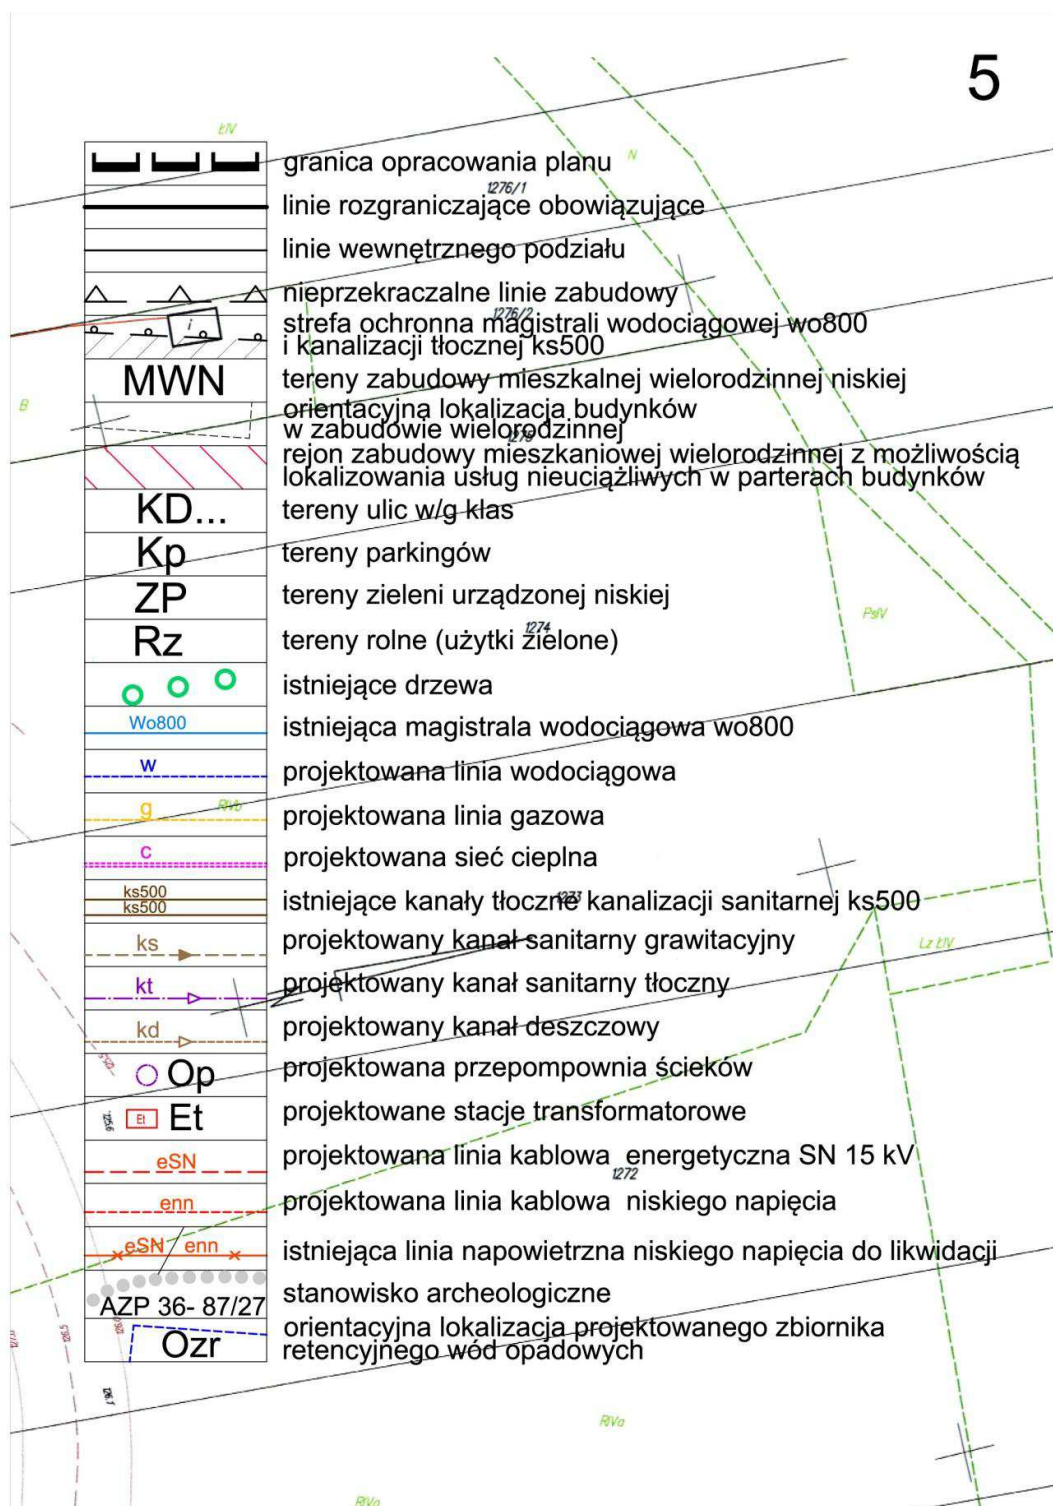 5
ŁIV
N
granica opracowania planu
1276/1
linie rozgraniczające obowiązujące
linie wewnętrznego podziału
nieprzekraczalne linie zabudowy
1276/2
i
strefa ochronna magistrali wodociągowej wo800
i kanalizacji tłocznej ks500
MWN tereny zabudowy mieszkalnej wielorodzinnej niskiej
B
orientacyjna lokalizacja budynków
w zabudowie wielorodzinnej
1275
rejon zabudowy mieszkaniowej wielorodzinnej z możliwością
lokalizowania usług nieuciążliwych w parterach budynków
KD... tereny ulic w/g klas
Kp tereny parkingów
ZP tereny zieleni urządzonej niskiej
PsIV
1274
Rz tereny rolne (użytki zielone)
istniejące drzewa
Wo800 istniejąca magistrala wodociągowa wo800
w projektowana linia wodociągowa
RIVb
g projektowana linia gazowa
c projektowana sieć cieplna
ks500
ks500
istniejące kanały tłoczne kanalizacji sanitarnej ks500
1273
ks projektowany kanał sanitarny grawitacyjny
Lz ŁIV
kt projektowany kanał sanitarny tłoczny
kd projektowany kanał deszczowy
125.5
Op projektowana przepompownia ścieków
125.6
Et Et projektowane stacje transformatorowe
eSN projektowana linia kablowa energetyczna SN 15 kV
1272
enn projektowana linia kablowa niskiego napięcia
eSN enn istniejąca linia napowietrzna niskiego napięcia do likwidacji
AZP 36- 87/27 stanowisko archeologiczne
127.0
126.5
126.0
Ozr
orientacyjna lokalizacja projektowanego zbiornika
retencyjnego wód opadowych
126.1
RIVa
RIVa